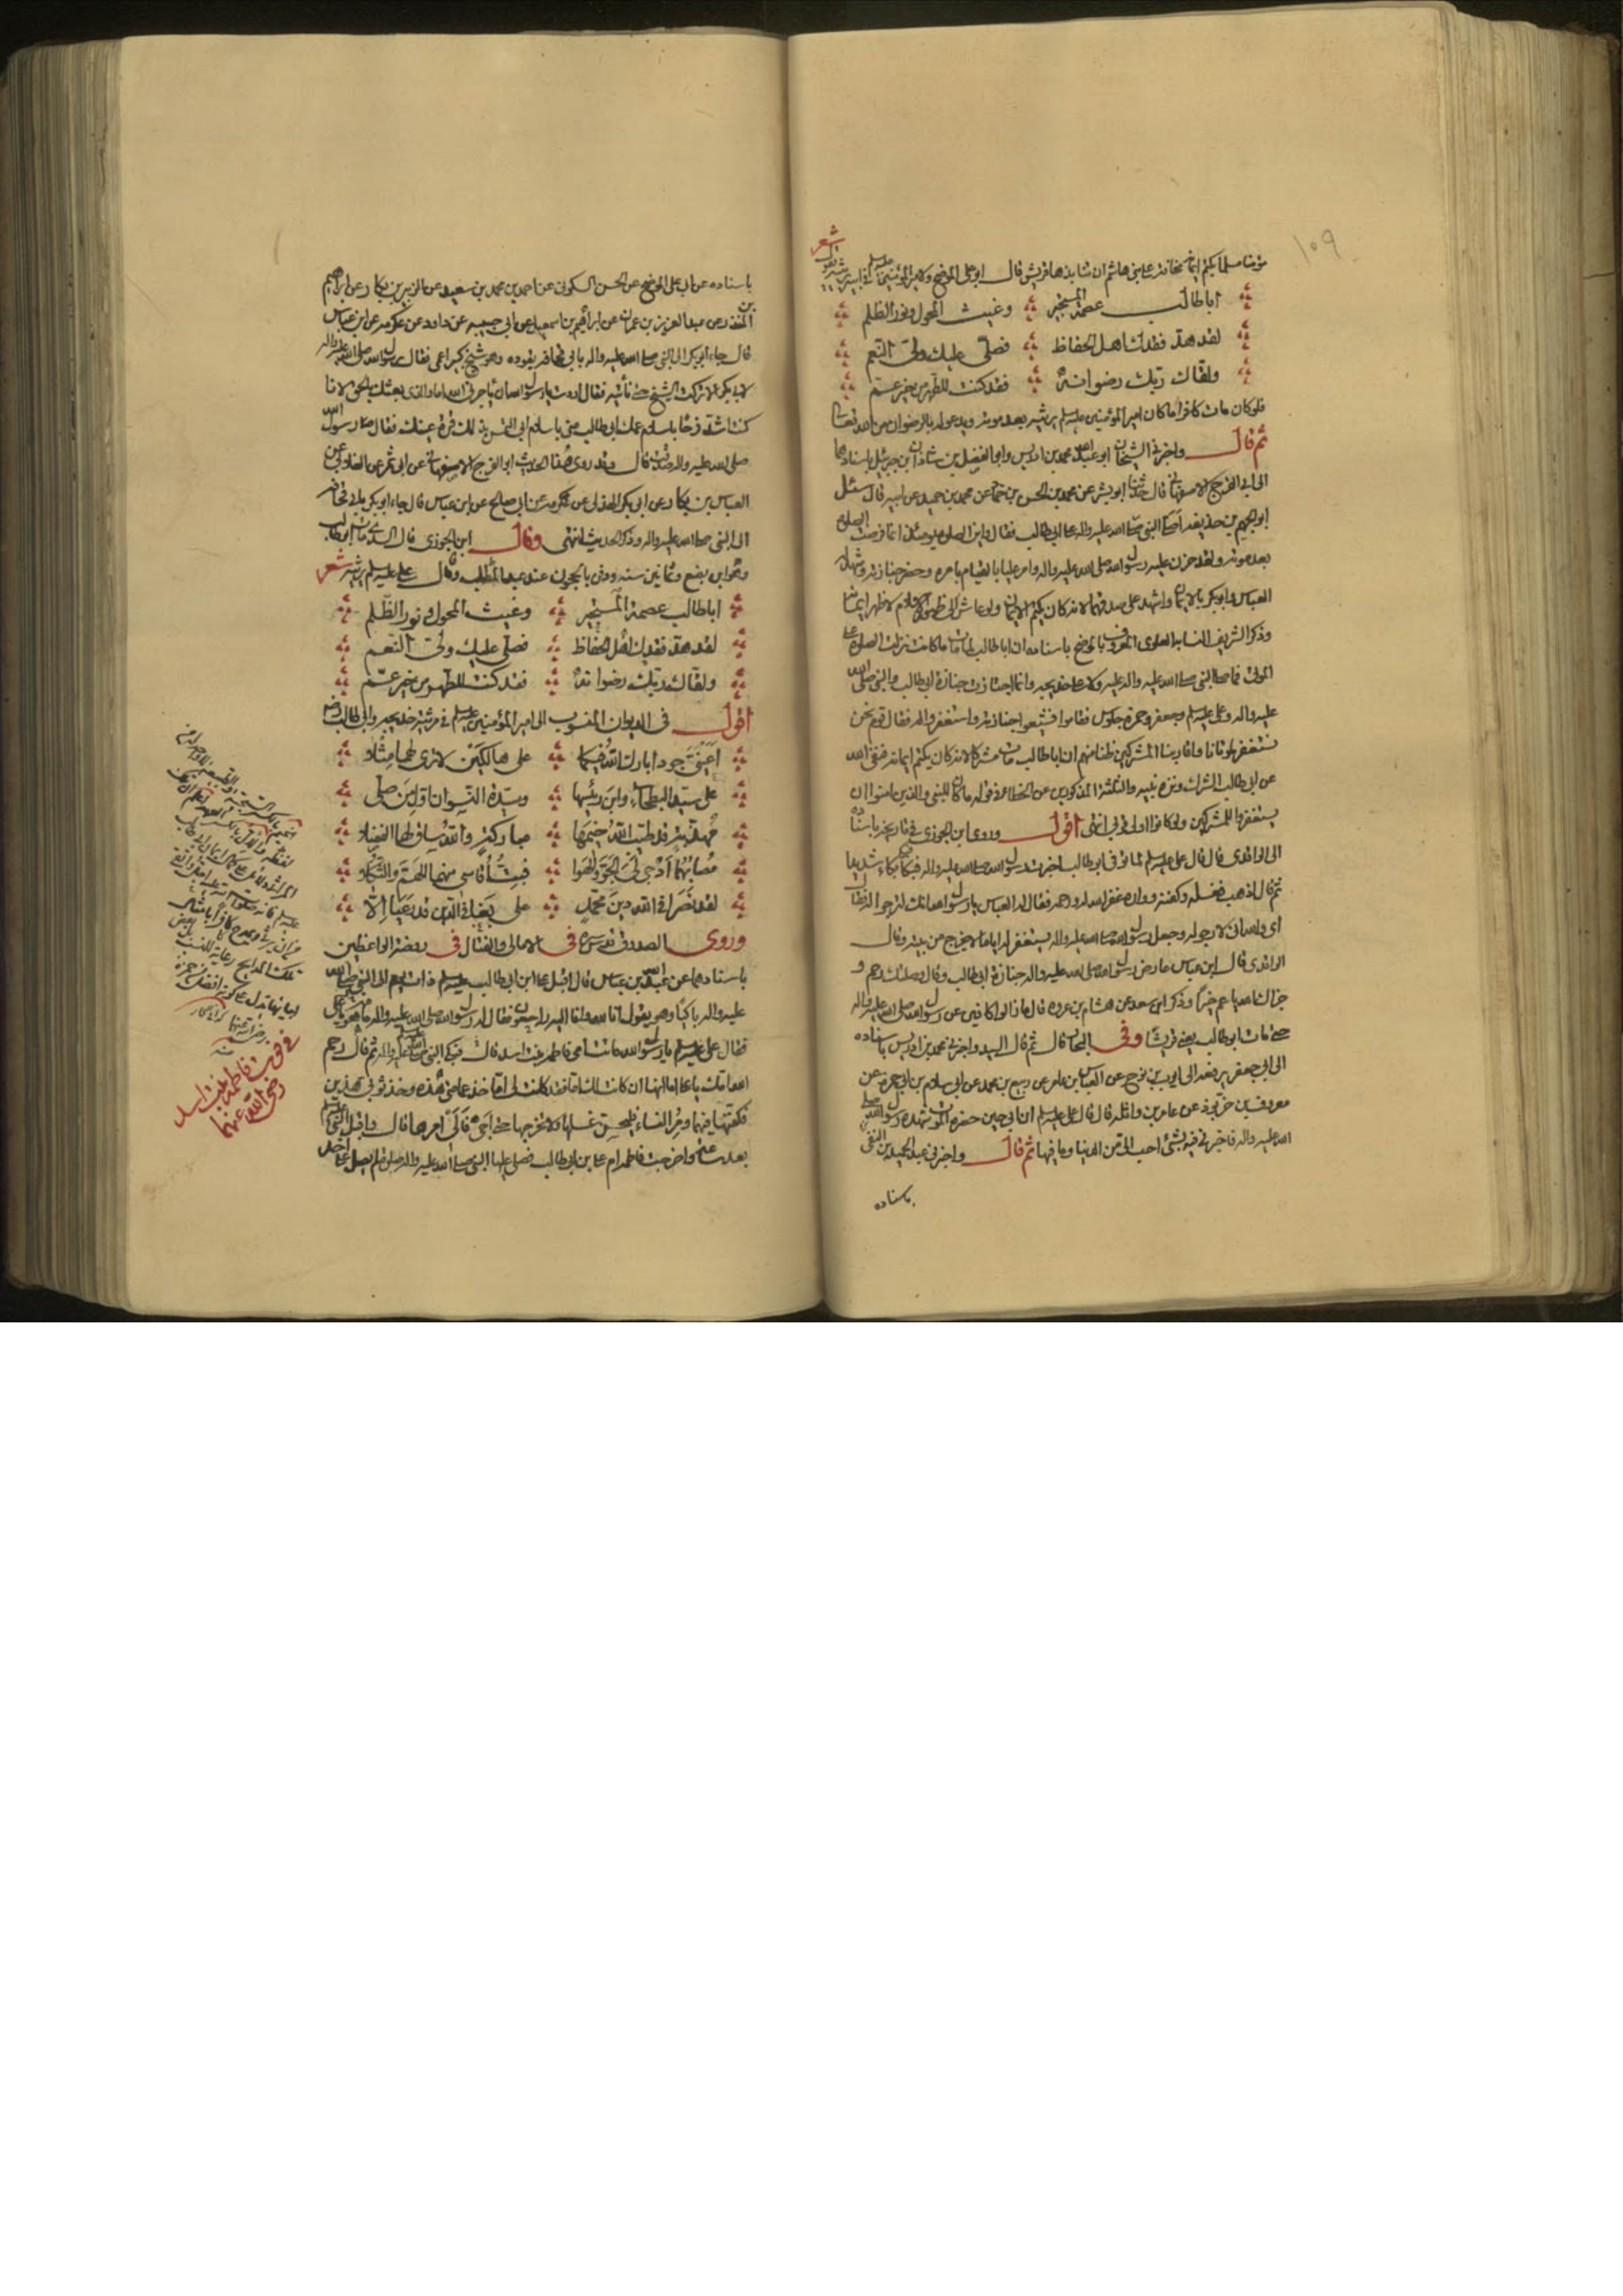 ١٠٩
مؤمنا مسلما يكتم ايمانه مخافة على بني هاشم ان تنابذها قريش قال ابو علي الموضح ولامير المؤمنين عليه السلم في ابيه يرثيه يقول شعر
اباطالب عصمة المستجير وغيث المحول ونور الظلم
لقد هد فقدك اهل الحفاظ فصلى عليك ولي النعم
ولقاك ربك رضوانه فقد كنت للطهر من خير عم
فلو كان مات كافرا ما كان امير المؤمنين عليه السلم يرثيه بعد موته ويدعو له بالرضوان من الله تعالى
ثم قال واخبرني الشيخان ابو عبد الله محمد بن ادريس وابو الفضل بن شاذان بن جبرئيل باسنادهما
الى ابي الفرج الاصفهاني قال حدثنا ابو بشر عن محمد بن الحسن بن حماد عن محمد بن حميد عن ابيه قال سئل
ابو الجهم بن حذيفة اصلى النبي صلى الله عليه واله على ابي طالب فقال واين الصلوة يومئذ انما فرضت الصلوة
بعد موته ولقد حزن عليه رسول الله صلى الله عليه واله وامر عليا بالقيام بامره وحضر جنازته وشهد له
العباس وابو بكر بالايمان واشهد على صدقهما لانه كان يكتم الايمان ولو عاش الى ظهور الاسلام لاظهر ايمانه
وذكر الشريف النسابة العلوي المعروف بالموضح باسناده ان اباطالب لما مات ما كانت نزلت الصلوة على
الموتى فما صلى النبي صلى الله عليه واله عليه ولا على خديجة وانما اجتازت جنازة ابي طالب والنبي صلى الله
عليه واله وعلي عليه السلم وجعفر وحمزة جلوس فقاموا فشيعوا جنازته واستغفروا له فقال قوم نحن
نستغفر لموتانا واقاربنا المشركين ظنا منهم ان اباطالب مات مشركا لانه كان يكتم ايمانه فنفى الله
عن ابي طالب الشرك ونزه نبيه والثلثة المذكورين عن الخطا في قوله ما كان للنبي والذين امنوا ان
يستغفروا للمشركين ولو كانوا اولي قربى انتهى اقول وروى ابن الجوزي في تاريخه باسناده
الى الواقدي قال قال علي عليه السلم لما توفي ابو طالب اخبرت رسول الله صلى الله عليه واله فبكى بكاء شديدا
ثم قال اذهب فغسله وكفنه وواره غفر الله له ورحمه فقال له العباس يا رسول الله انك لترجو له فقال
اي والله اني لارجو له وجعل رسول الله صلى الله عليه واله يستغفر له اياما لا يخرج من بيته وقال
الواقدي قال ابن عباس عارض رسول الله صلى الله عليه واله جنازة ابي طالب وقال وصلتك رحم و
جزاك الله يا عم خيرا وذكر ابن سعد عن هشام بن عروة قال ما زالوا كافين عن رسول الله صلى الله عليه واله
حتى مات ابو طالب يعني قريشا وفي البحار قال ثم قال السيد واخبرني محمد بن ادريس باسناده
الى ابي جعفر يرفعه الى ايوب بن نوح عن العباس بن عامر عن ربيع بن محمد عن ابي سلام بن ابي حمزة عن
معروف بن خربوذ عن عامر بن واثلة قال قال علي عليه السلم ان ابي حين حضره الموت شهده رسول الله صلى
الله عليه واله فاخبرني فيه بشيء احب الي من الدنيا وما فيها ثم قال واخبرني عبد الحميد بن التقي
باسناده
باسناده عن ابي علي الموضح عن الحسن السكوني عن احمد بن محمد بن سعيد عن الزبير بن بكار عن ابراهيم
بن المنذر عن عبد العزيز بن عمران عن ابراهيم بن اسمعيل عن ابي حبيبة عن داود عن عكرمة عن ابن عباس
قال جاء ابو بكر الى النبي صلى الله عليه واله بابي قحافة يقوده وهو شيخ كبير اعمى فقال رسول الله صلى الله عليه واله
لابي بكر الا تركت الشيخ حتى ناتيه فقال اردت يا رسول الله ان ياجرني الله اما والذي بعثك بالحق لانا
كنت اشد فرحا باسلام عمك ابي طالب مني باسلام ابي التمس بذلك قرة عينك فقال رسول الله
صلى الله عليه واله صدقت قال وقد روى هذا الحديث ابو الفرج الاصفهاني عن ابي بشر عن الغلابي عن
العباس بن بكار عن ابي بكر الهذلي عن عكرمة عن ابي صالح عن ابن عباس قال جاء ابو بكر بابي قحافة
الى النبي صلى الله عليه واله وذكر الحديث انتهى وقال ابن الجوزي قال السدي مات ابو طالب
وهو ابن بضع وثمانين سنة ودفن بالحجون عند عبد المطلب وقال علي عليه السلم يرثيه شعر
اباطالب عصمة المستجير وغيث المحول ونور الظلم
لقد هد فقدك اهل الحفاظ فصلى عليك ولي النعم
ولقاك ربك رضوانه فقد كنت للطهر من خير عم
اقول في الديوان المنسوب الى امير المؤمنين عليه السلم في مرثية خديجة وابي طالب رض
اعيني جودا بارك الله فيكما على هالكين لا ترى لهما مثلا
على سيد البطحاء وابن رئيسها وسيدة النسوان اول من صلى
مهذبة قد طيب الله خيمها مباركة والله ساق لها الفضلا
مصابهما ادجى لي الجو والهوا فبت اقاسي منهما الهم والثكلا
لقد نصرا في الله دين محمد على من بغى في الدين قد رعيا الا
وروى الصدوق قدس سره في الامالي والفتال في روضة الواعظين
باسنادهما عن عبد الله بن عباس قال اقبل علي ابن ابي طالب عليه السلم ذات يوم الى النبي صلى الله
عليه واله باكيا وهو يقول انا لله وانا اليه راجعون فقال له رسول الله صلى الله عليه واله مه يا علي
فقال علي عليه السلم يا رسول الله ماتت امي فاطمة بنت اسد قال فبكى النبي صلى الله عليه واله ثم قال رحم
الله امك يا علي اما انها ان كانت لك اما فقد كانت لي اما خذ عمامتي هذه وخذ ثوبي هذين
فكفنها فيهما ومر النساء فليحسن غسلها ولا تخرجها حتى اجيء فالي امرها قال واقبل النبي
بعد ساعة واخرجت فاطمة ام علي بن ابي طالب فصلى عليها النبي صلى الله عليه واله صلوة لم يصل على احد
في فوت فاطمة بنت اسد
رضي الله عنها